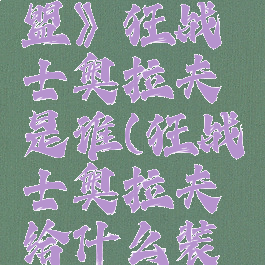 盟》狂战
士奥拉夫
是谁(狂战
士奥拉夫
给什么装